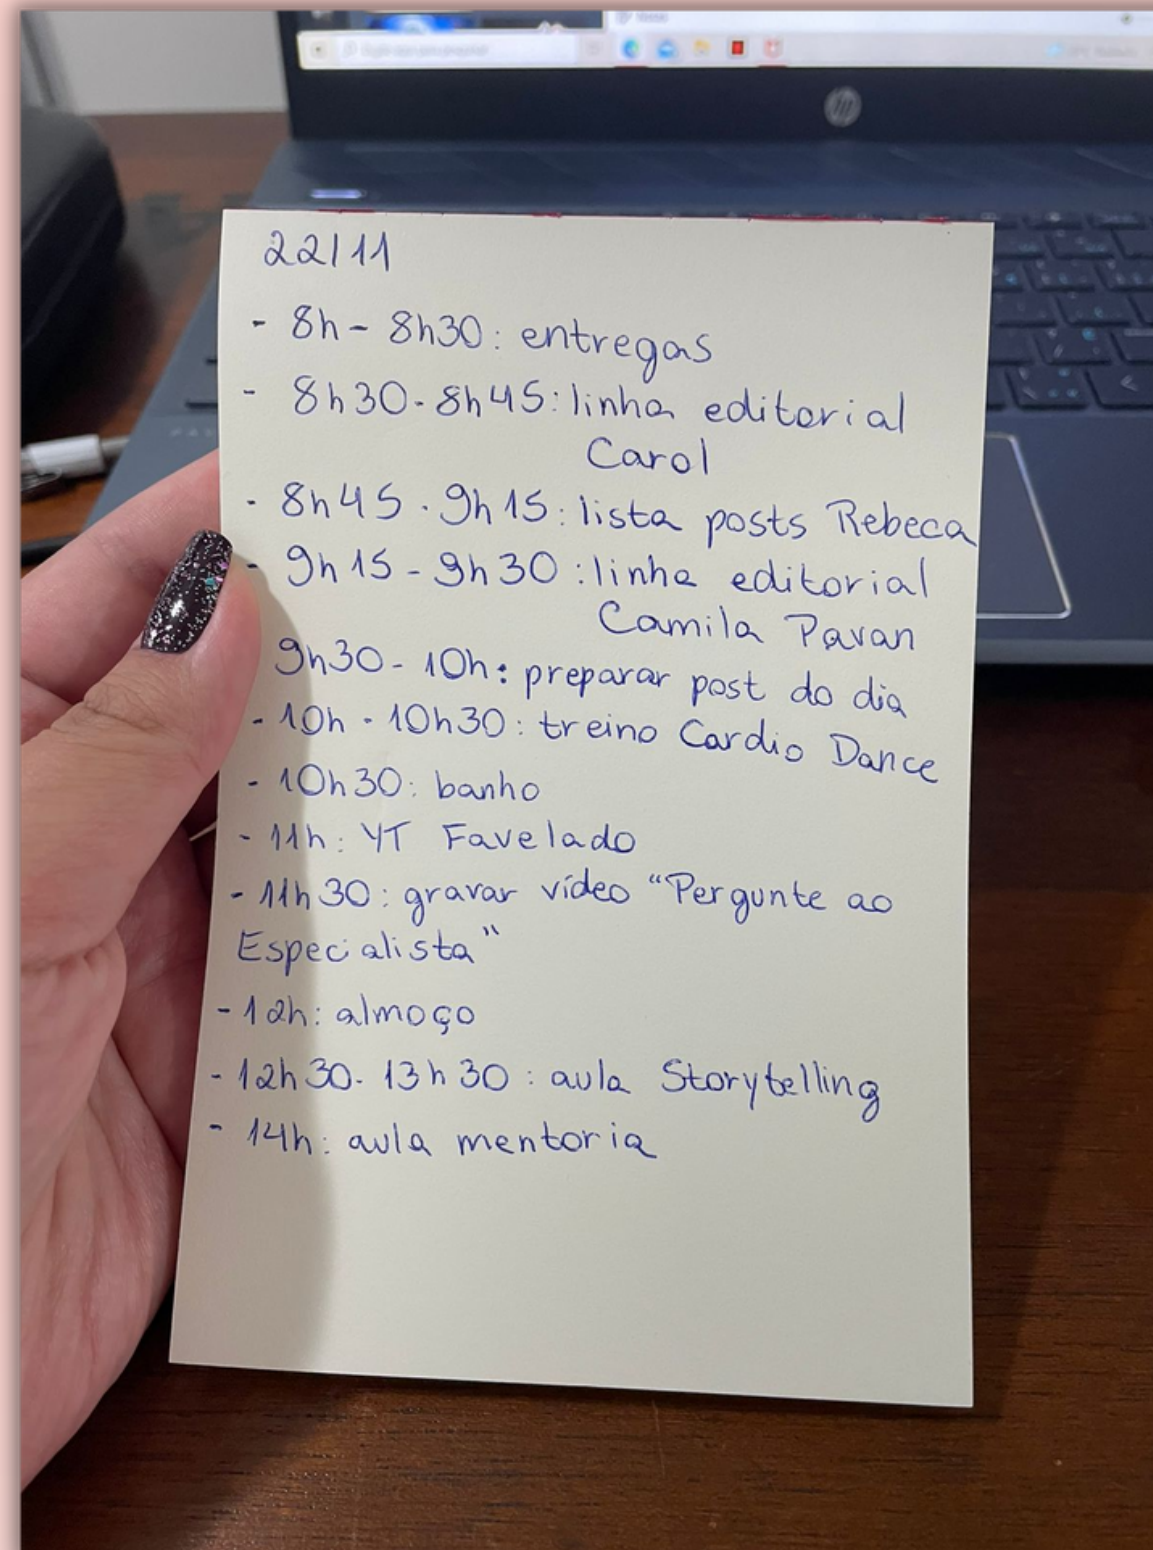 hp
22/11
- 8h - 8h30: entregas
- 8h30 - 8h45: linha editorial
Carol
- 8h45 - 9h15: lista posts Rebeca
- 9h15 - 9h30: linha editorial
Camila Pavan
9h30 - 10h: preparar post do dia
- 10h - 10h30: treino Cardio Dance
- 10h30: banho
- 11h: YT Favelado
- 11h30: gravar vídeo "Pergunte ao
Especialista"
- 12h: almoço
- 12h30 - 13h30: aula Storytelling
- 14h: aula mentoria